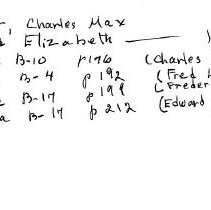 , Charles Max
Elizabeth
B-10 p176 (Charles
B-4 p192 (Fred
B-17 p199 (Freder
B-17 p212 (Edward